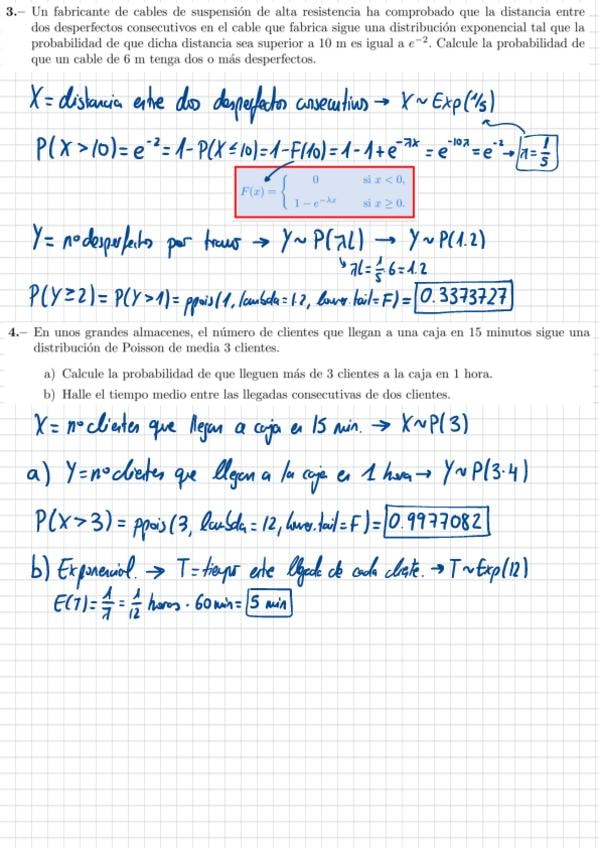 3.– Un fabricante de cables de suspensión de alta resistencia ha comprobado que la distancia entre
dos desperfectos consecutivos en el cable que fabrica sigue una distribución exponencial tal que la
probabilidad de que dicha distancia sea superior a 10 m es igual a e⁻². Calcule la probabilidad de
que un cable de 6 m tenga dos o más desperfectos.
X = distancia entre dos desperfectos consecutivos → X ~ Exp(1/5)
P(X > 10) = e⁻² = 1 - P(X ≤ 10) = 1 - F(10) = 1 - 1 + e^(-λx) = e^(-10λ) = e⁻² → λ = 1/5
F(x) = { 0 si x < 0,
1 − e^(−λx) si x ≥ 0.
Y = nº desperfectos por tramo → Y ~ P(λL) → Y ~ P(1.2)
λL = 1/5 · 6 = 1.2
P(Y ≥ 2) = P(Y > 1) = ppois(1, lambda = 1.2, lower.tail = F) = 0.3373727
4.– En unos grandes almacenes, el número de clientes que llegan a una caja en 15 minutos sigue una
distribución de Poisson de media 3 clientes.
a) Calcule la probabilidad de que lleguen más de 3 clientes a la caja en 1 hora.
b) Halle el tiempo medio entre las llegadas consecutivas de dos clientes.
X = nº clientes que llegan a caja en 15 min. → X ~ P(3)
a) Y = nº clientes que llegan a la caja en 1 hora → Y ~ P(3·4)
P(X > 3) = ppois(3, lambda = 12, lower.tail = F) = 0.9977082
b) Exponencial. → T = tiempo entre llegada de cada cliente. → T ~ Exp(12)
E(T) = 1/λ = 1/12 horas · 60 min = 5 min